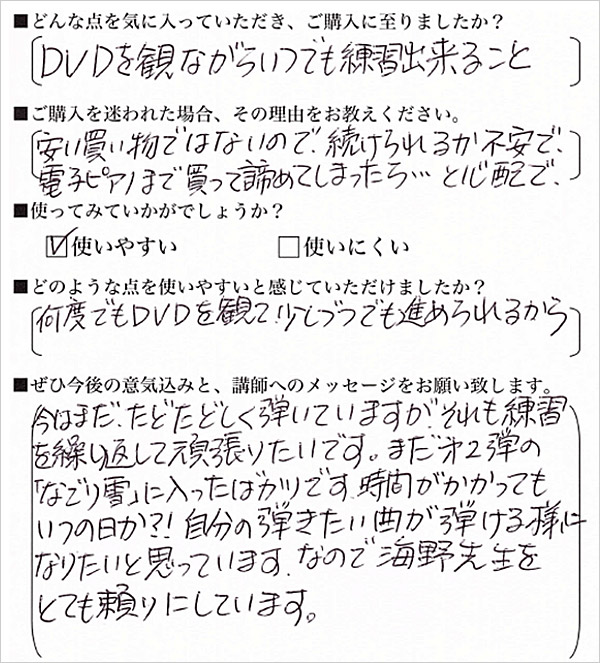 ■どんな点を気に入っていただき、ご購入に至りましたか？
DVDを観ながらいつでも練習出来ること
■ご購入を迷われた場合、その理由をお教えください。
安い買い物ではないので、続けられるか不安で、
電子ピアノまで買って諦めてしまったら…と心配で、
■使ってみていかがでしょうか？
☑使いやすい　□使いにくい
■どのような点を使いやすいと感じていただけましたか？
何度でもDVDを観て！少しづつでも進められるから
■ぜひ今後の意気込みと、講師へのメッセージをお願い致します。
今はまだ、たどたどしく弾いていますが、それも練習
を繰り返して頑張りたいです。まだ第2弾の
「なごり雪」に入ったばかりです。時間がかかっても
いつの日か?!自分の弾きたい曲が弾ける様に
なりたいと思っています、なので海野先生を
とても頼りにしています。